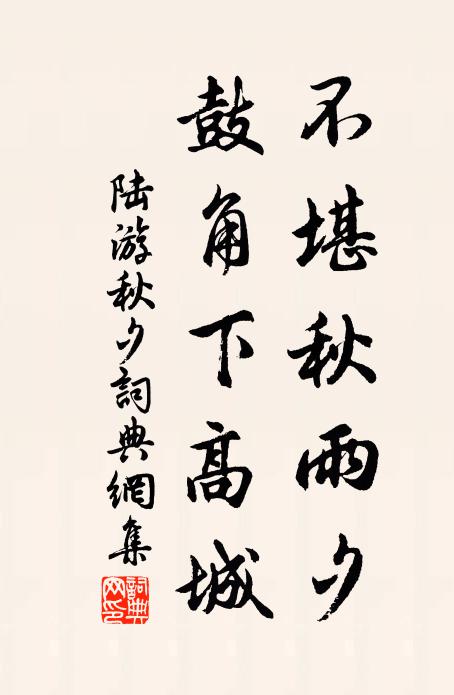 不堪秋雨夕
鼓角下高城
陆游秋夕詞典網集
詞典網印